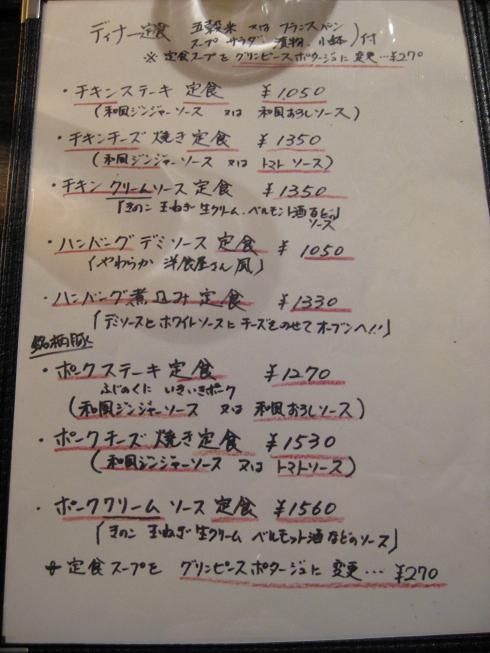 ディナー定食 五穀米 又は フランスパン
スープ サラダ 漬物 小鉢)付
※ 定食スープを グリンピースポタージュに変更…¥270
・チキンステーキ 定食 ¥1,050
(和風ジンジャーソース 又は 和風おろしソース)
・チキンチーズ 焼き定食 ¥1350
(和風ジンジャーソース 又は トマトソース)
・チキン クリームソース 定食 ¥1350
「きのこ 玉ねぎ 生クリーム、ベルモント酒などの
ソース
・ハンバーグ デミソース 定食 ¥1050
(やわらか 洋食屋さん風」
・ハンバーグ煮込み 定食 ¥1330
「デミソースとホワイトソースにチーズをのせてオーブンへ!!」
銘柄豚
・ポークステーキ 定食 ¥1270
ふじのくに いきいきポーク
(和風ジンジャーソース 又は 和風おろしソース)
・ポークチーズ 焼き定食 ¥1530
(和風ジンジャーソース 又は トマトソース)
・ポーククリーム ソース 定食 ¥1560
「きのこ 玉ねぎ 生クリーム ベルモット酒などのソース」
定食スープを グリンピースポタージュに 変更… ¥270